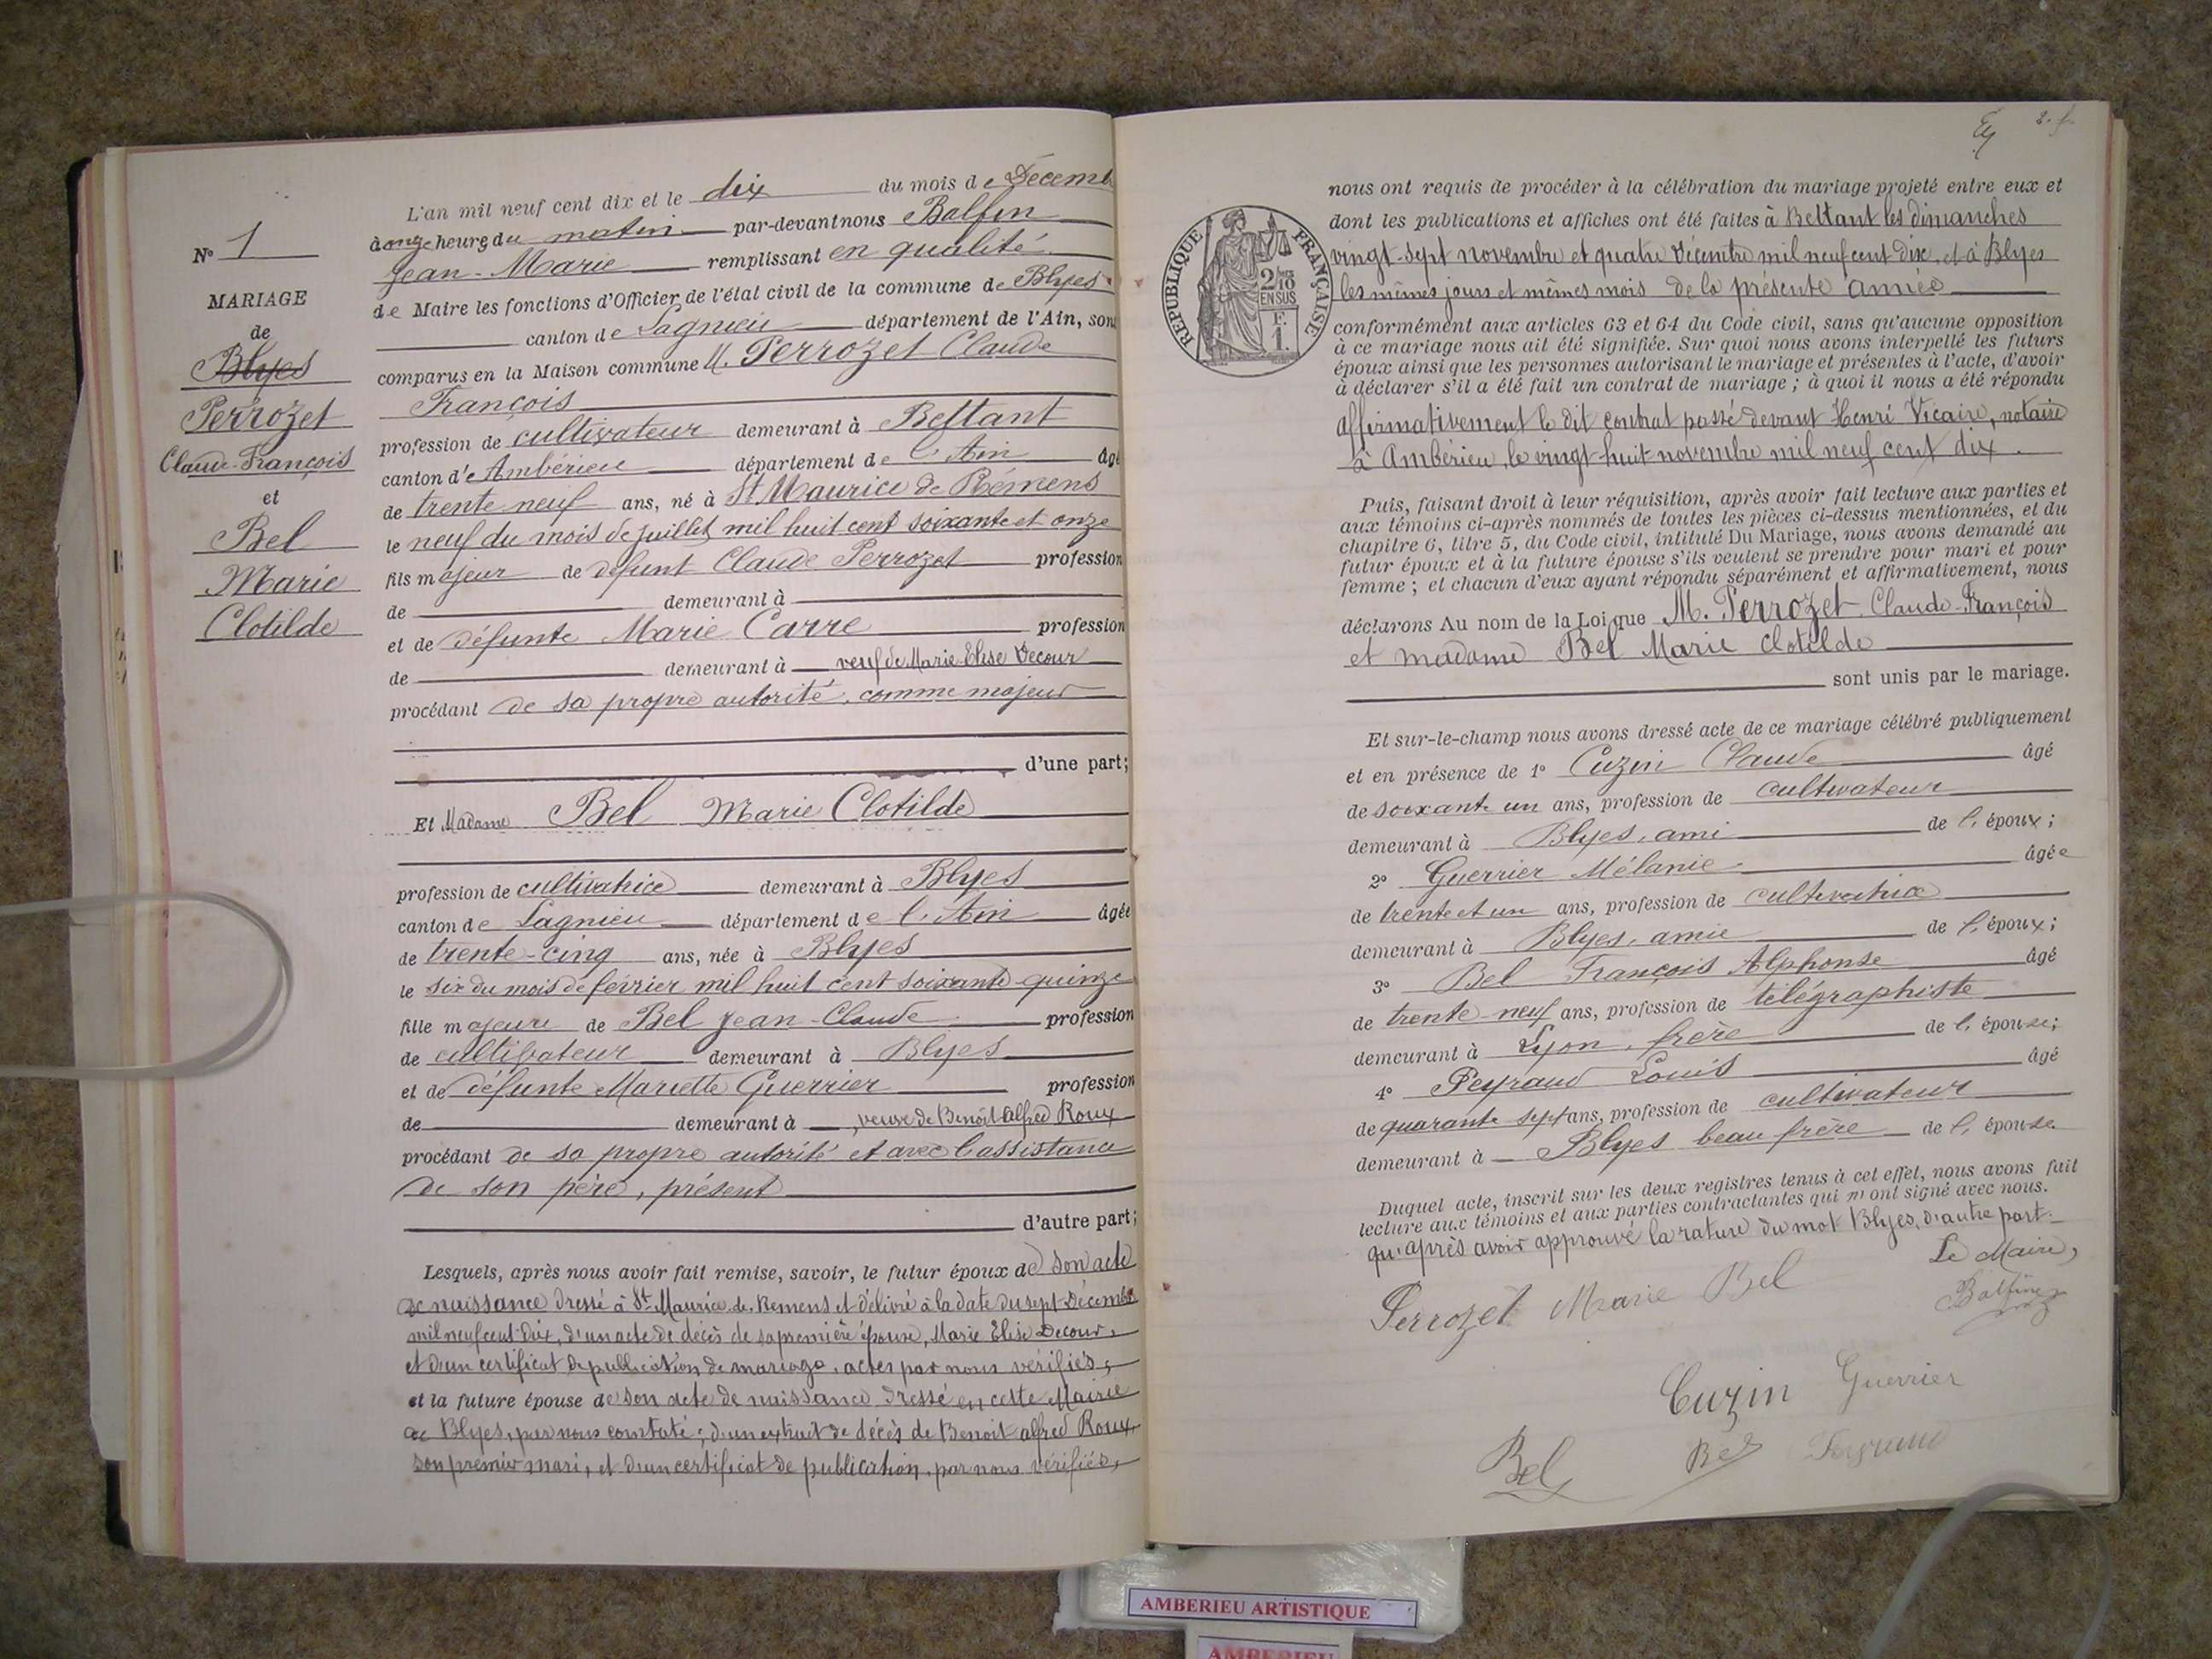 N° 1
MARIAGE
de
Blyes
Perrozet
Claude-François
et
Bel
Marie
Clotilde
L'an mil neuf cent dix et le dix du mois de Décemb
à onze heures du matin par-devant nous Balfin
Jean-Marie remplissant en qualité
de Maire les fonctions d'Officier de l'état civil de la commune de Blyes
canton de Lagnieu département de l'Ain, sont
comparus en la Maison commune M. Perrozet Claude
François
profession de cultivateur demeurant à Bettant
canton d'e Ambérieu département de l'Ain âgé
de trente neuf ans, né à St Maurice de Rémens
le neuf du mois de juillet mil huit cent soixante et onze
fils majeur de défunt Claude Perrozet profession
de demeurant à
et de défunte Marie Carre profession
de demeurant à veuf de Marie-Elise Decour
procédant de sa propre autorité, comme majeur
d'une part;
Et Madame Bel Marie Clotilde
profession de cultivatrice demeurant à Blyes
canton de Lagnieu département de l'Ain âgée
de trente-cinq ans, née à Blyes
le six du mois de février mil huit cent soixante quinze
fille majeure de Bel Jean-Claude profession
de cultivateur demeurant à Blyes
et de défunte Mariette Guerrier profession
de demeurant à , veuve de Benoît Alfred Roux
procédant de sa propre autorité et avec l'assistance
de son père, présent
d'autre part;
Lesquels, après nous avoir fait remise, savoir, le futur époux de son acte
de naissance dressé à St Maurice de Remens et délivré à la date du sept Décembre
mil neuf cent dix, d'un acte de décès de sa première épouse, Marie Elise Decour,
et d'un certificat de publication de mariage, actes par nous vérifiés,
et la future épouse de son acte de naissance dressé en cette Mairie
de Blyes, par nous constaté; d'un extrait de décès de Benoit alfred Roux
son premier mari, et d'un certificat de publication, par nous vérifiés,
2. f.
RÉPUBLIQUE FRANÇAISE
2/10
EN SUS
F.
1.
nous ont requis de procéder à la célébration du mariage projeté entre eux et
dont les publications et affiches ont été faites à Bettant les dimanches
vingt-sept novembre et quatre Décembre mil neuf cent dix, et à Blyes
les mêmes jours et mêmes mois de la présente année
conformément aux articles 63 et 64 du Code civil, sans qu'aucune opposition
à ce mariage nous ait été signifiée. Sur quoi nous avons interpellé les futurs
époux ainsi que les personnes autorisant le mariage et présentes à l'acte, d'avoir
à déclarer s'il a été fait un contrat de mariage; à quoi il nous a été répondu
affirmativement le dit contrat passé devant Henri Vicaire, notaire
à Ambérieu, le vingt-huit novembre mil neuf cent dix.
Puis, faisant droit à leur réquisition, après avoir fait lecture aux parties et
aux témoins ci-après nommés de toutes les pièces ci-dessus mentionnées, et du
chapitre 6, titre 5, du Code civil, intitulé Du Mariage, nous avons demandé au
futur époux et à la future épouse s'ils veulent se prendre pour mari et pour
femme; et chacun d'eux ayant répondu séparément et affirmativement, nous
déclarons Au nom de la Loi que M. Perrozet Claude-François
et madame Bel Marie Clotilde
sont unis par le mariage.
Et sur-le-champ nous avons dressé acte de ce mariage célébré publiquement
et en présence de 1° Cuzin Claude âgé
de soixante un ans, profession de cultivateur
demeurant à Blyes, ami de l'époux;
2° Guerrier Mélanie âgée
de trente et un ans, profession de cultivatrice
demeurant à Blyes, amie de l'époux;
3° Bel François Alphonse âgé
de trente-neuf ans, profession de télégraphiste
demeurant à Lyon, frère de l'épouse;
4° Peyraud Louis âgé
de quarante sept ans, profession de cultivateur
demeurant à Blyes beau frère de l'épouse
Duquel acte, inscrit sur les deux registres tenus à cet effet, nous avons fait
lecture aux témoins et aux parties contractantes qui n'ont signé avec nous.
qu'après avoir approuvé la rature du mot Blyes, d'autre part.
Le Maire,
Perrozet Marie Bel Balfin
Cuzin Guerrier
Bel Bel Peyraud
AMBERIEU ARTISTIQUE
AMBERIEU